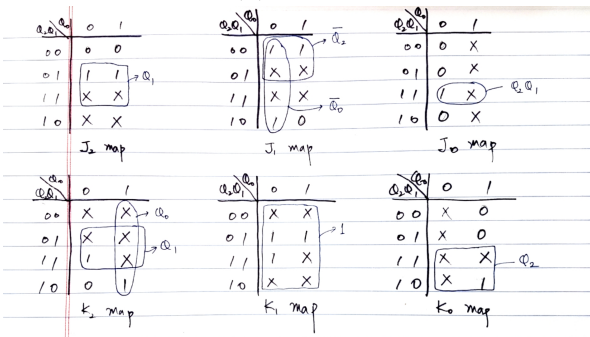 Q₂Q₁ Q₀ 0 1
00 0 0
01 1 1 Q₁
11 X X
10 X X
J₂ map
Q₂Q₁ Q₀ 0 1 Q̅₂
00 1 1
01 X X
11 X X Q̅₀
10 1 0
J₁ map
Q₂Q₁ Q₀ 0 1
00 0 X
01 0 X
11 1 X Q₂Q₁
10 0 X
J₀ map
Q₂Q₁ Q₀ 0 1
00 X X Q₀
01 X X Q₁
11 1 X
10 0 1
K₂ map
Q₂Q₁ Q₀ 0 1
00 X X
01 1 1 1
11 1 X
10 X X
K₁ map
Q₂Q₁ Q₀ 0 1
00 X 0
01 X 0
11 X X Q₂
10 X 1
K₀ map